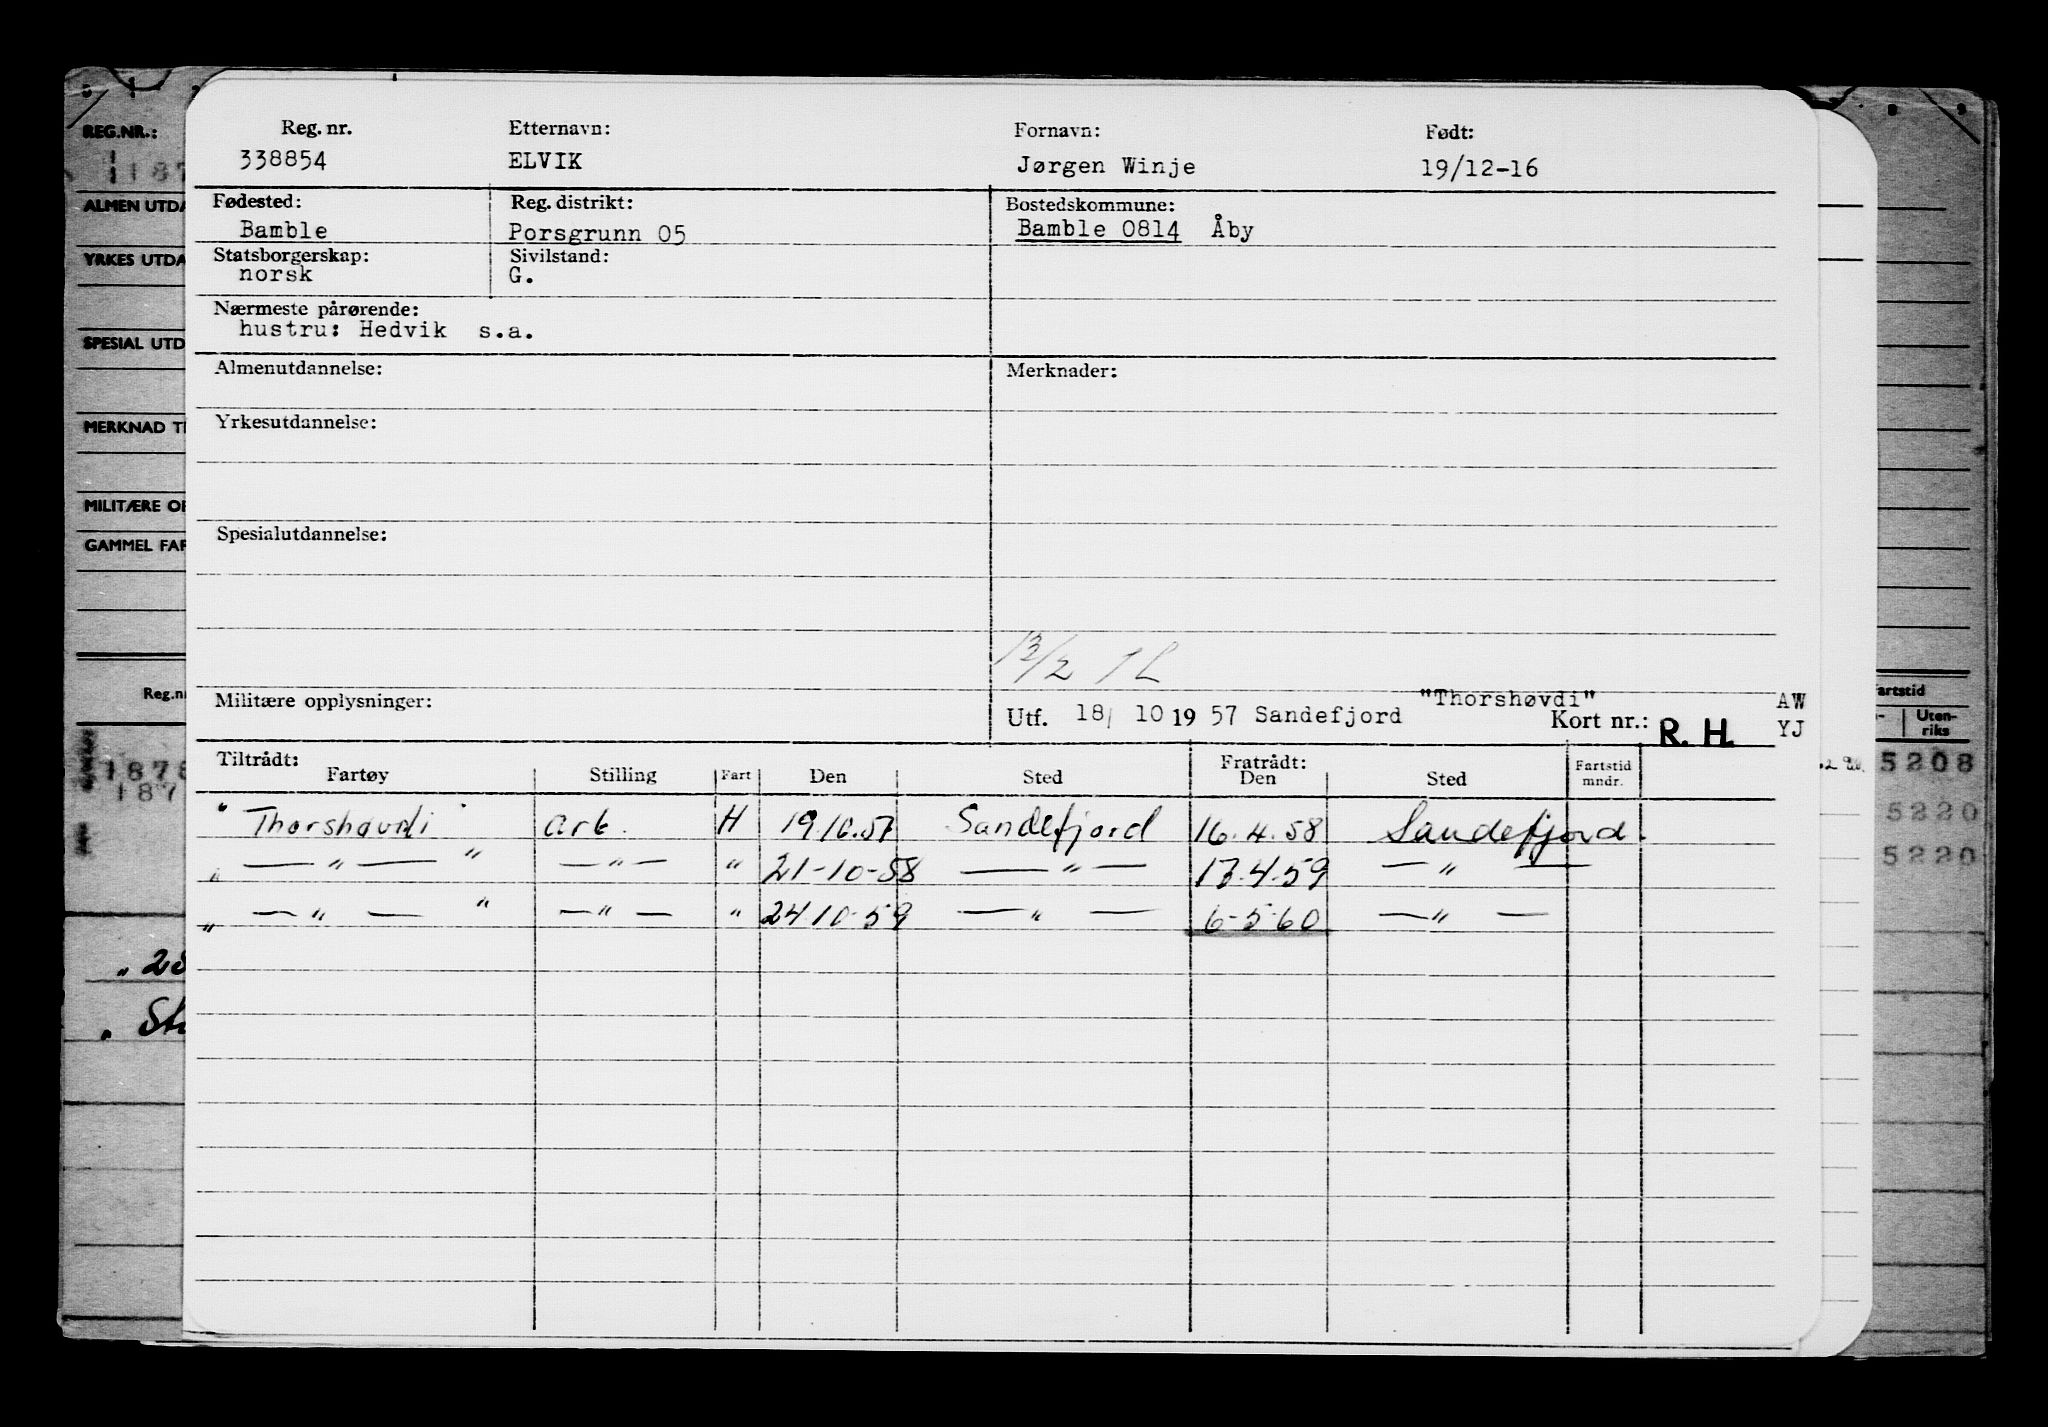 Reg. nr. Etternavn: Fornavn: Født:
338854 ELVIK Jørgen Winje 19/12-16
Fødested: Reg. distrikt: Bostedskommune:
Bamble Porsgrunn 05 Bamble 0814 Åby
Statsborgerskap: Sivilstand:
norsk G.
Nærmeste pårørende:
hustru: Hedvik s.a.
Almenutdannelse: Merknader:
Yrkesutdannelse:
Spesialutdannelse:
Militære opplysninger:
"Thorshøvdi" AW
Utf. 18/ 10 19 57 Sandefjord Kort nr.: R. H. YJ
Tiltrådt: Fratrådt:
Fartøy Stilling Fart Den Sted Den Sted Fartstid mndr.
"Thorshøvdi" arb. H 19.10.57 Sandefjord 16.4.58 Sandefjord.
" — " — " — " — " 21-10-58 — " — 13.4.59 — " —
" — " — " — " — " 24 10-59 — " — 6-5-60 — " —
REG.NR.:
187
ALMEN UTDA
YRKES UTDA
SPESIAL UTD
MERKNAD T
MILITÆRE O
GAMMEL FAR
Reg.n
1878
187
artstid
Uten-
riks
5208
5220
5220